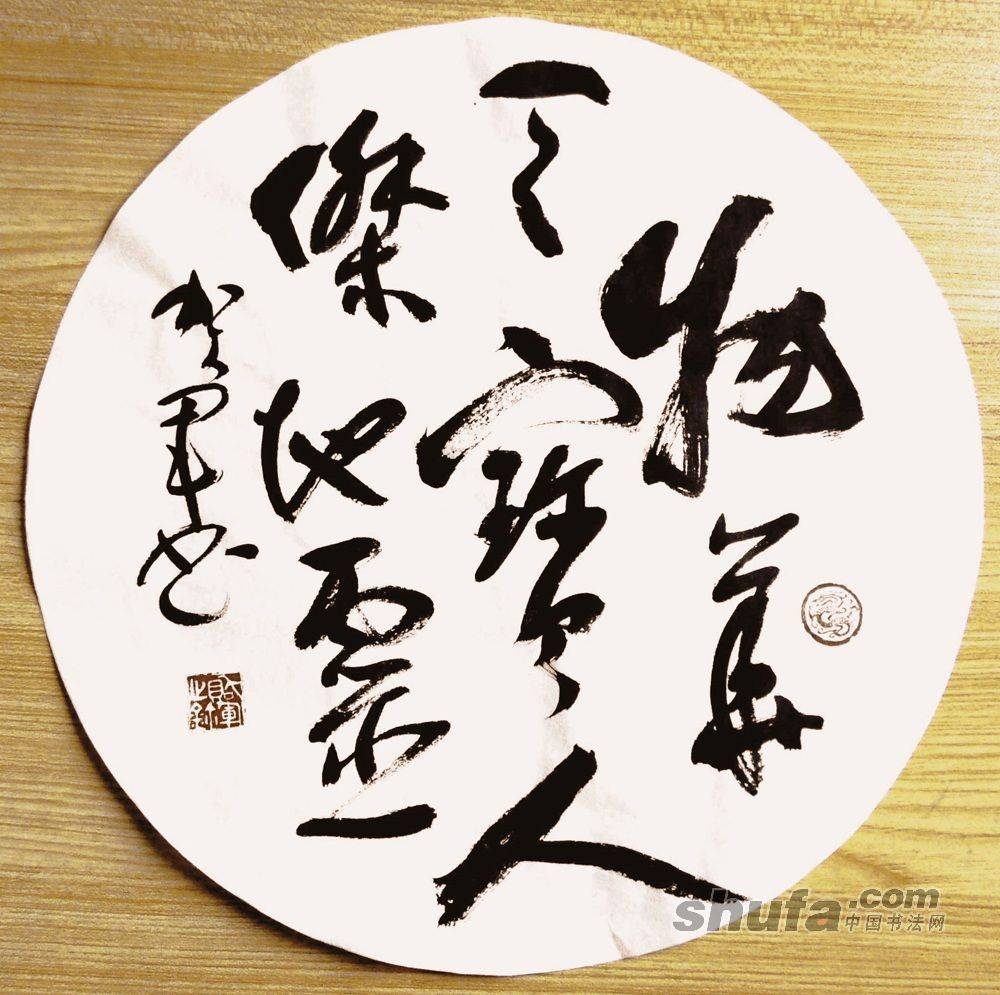 物華
天寶人
傑地靈
軍書
shufa.com
中国书法网